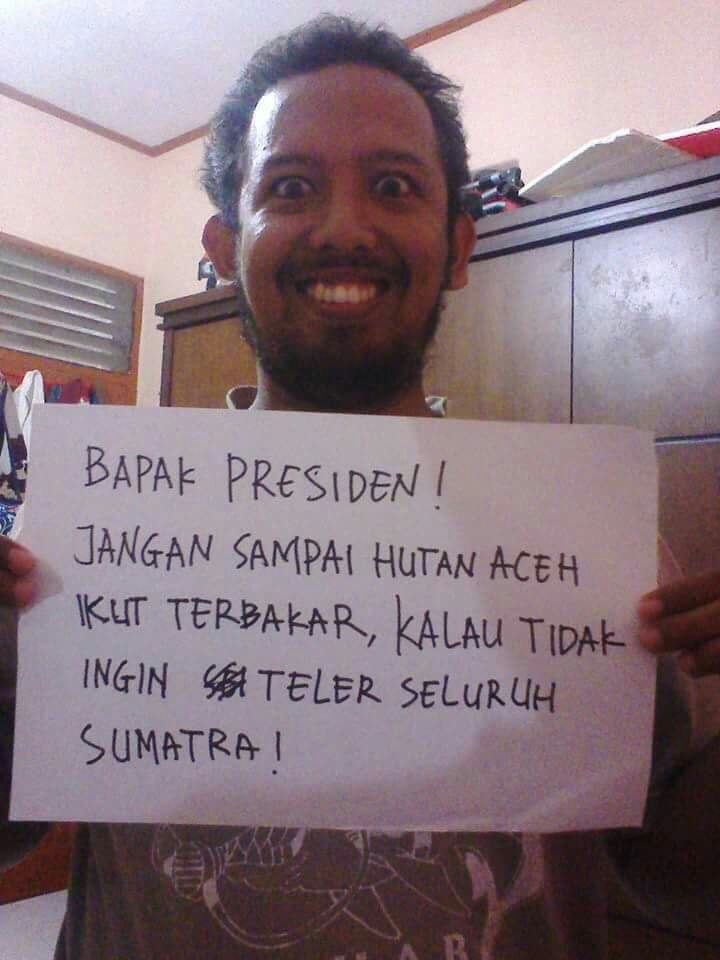 BAPAK PRESIDEN!
JANGAN SAMPAI HUTAN ACEH
IKUT TERBAKAR, KALAU TIDAK
INGIN TELER SELURUH
SUMATRA!